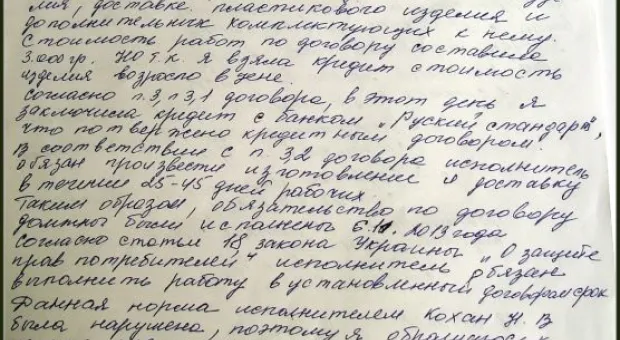 лия, доставке. пластикового изделия и
дополнительных комплектующих к нему.
Стоимость работ по договору составила
3.000гр. НО т.к. я взяла кредит стоимость
изделия возросло в цене.
Согласно п.3, п 3,1 договора, в этот день я
заключила кредит с банком "Руский стандарт",
что потвержено кредитным договором.
В соответствии с п. 3,2 договора исполнитель
обязан произвести изготовление и доставку
в течении 25-45 дней рабочих.
Таким образом, обязательство по договору
должны были исполнены 6.11. 2013 года
Согласно статьи 18, закона Украины "О защите
прав потребителей" исполнитель обязан
выполнить работу в установленный договором срок
Данная норма исполнителем Кохан Н. В
была нарушена, поэтому я обращалась к